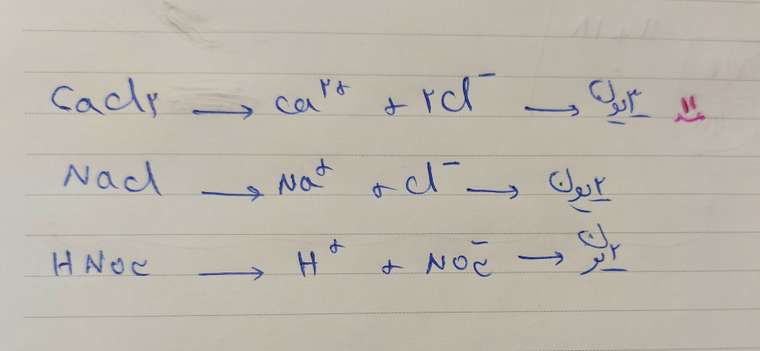 CaCl۲ → Ca۲+ + ۲Cl⁻ → ۳ یون
NaCl → Na+ + Cl⁻ → ۲ یون
HNO۳ → H+ + NO۳⁻ → ۲ یون